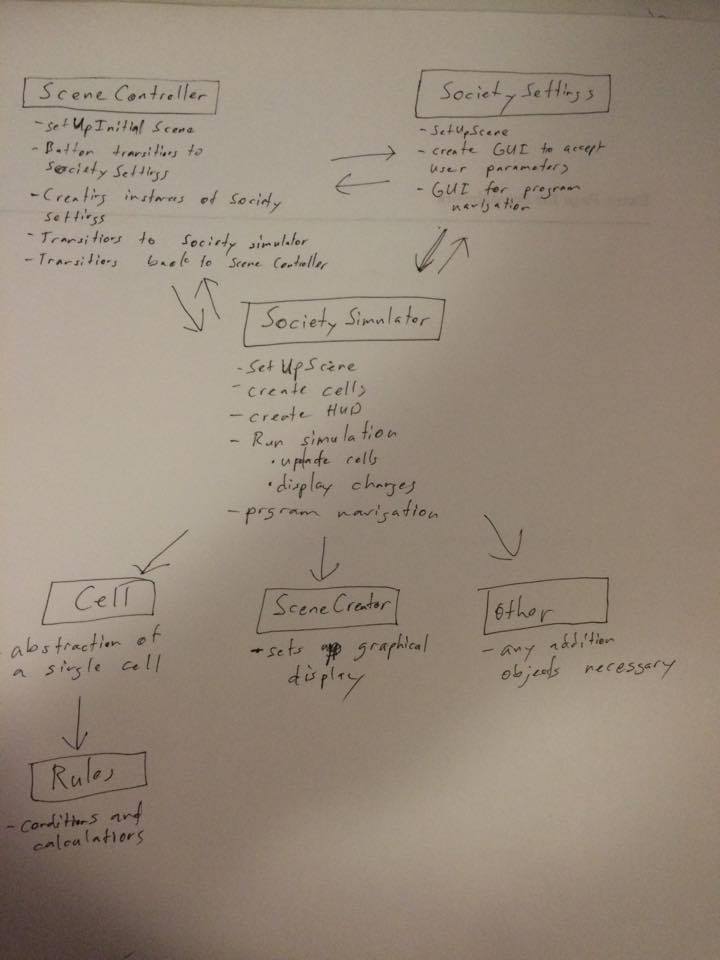 Scene Controller
- setUpInitial Scene
- Button transitions to
Society Settings
- Creating instances of Society
settings
- Transitions to Society simulator
- Transitions back to Scene Controller
Society Settings
- SetUpScene
- create GUI to accept
user parameters
- GUI for program
navigation
Society Simulator
- SetUpScene
- create cells
- create HUD
- Run simulation
• update cells
• display changes
- program navigation
Cell
- abstraction of
a single cell
Scene Creator
- sets up graphical
display
Other
- any addition
objects necessary
Rules
- conditions and
calculations